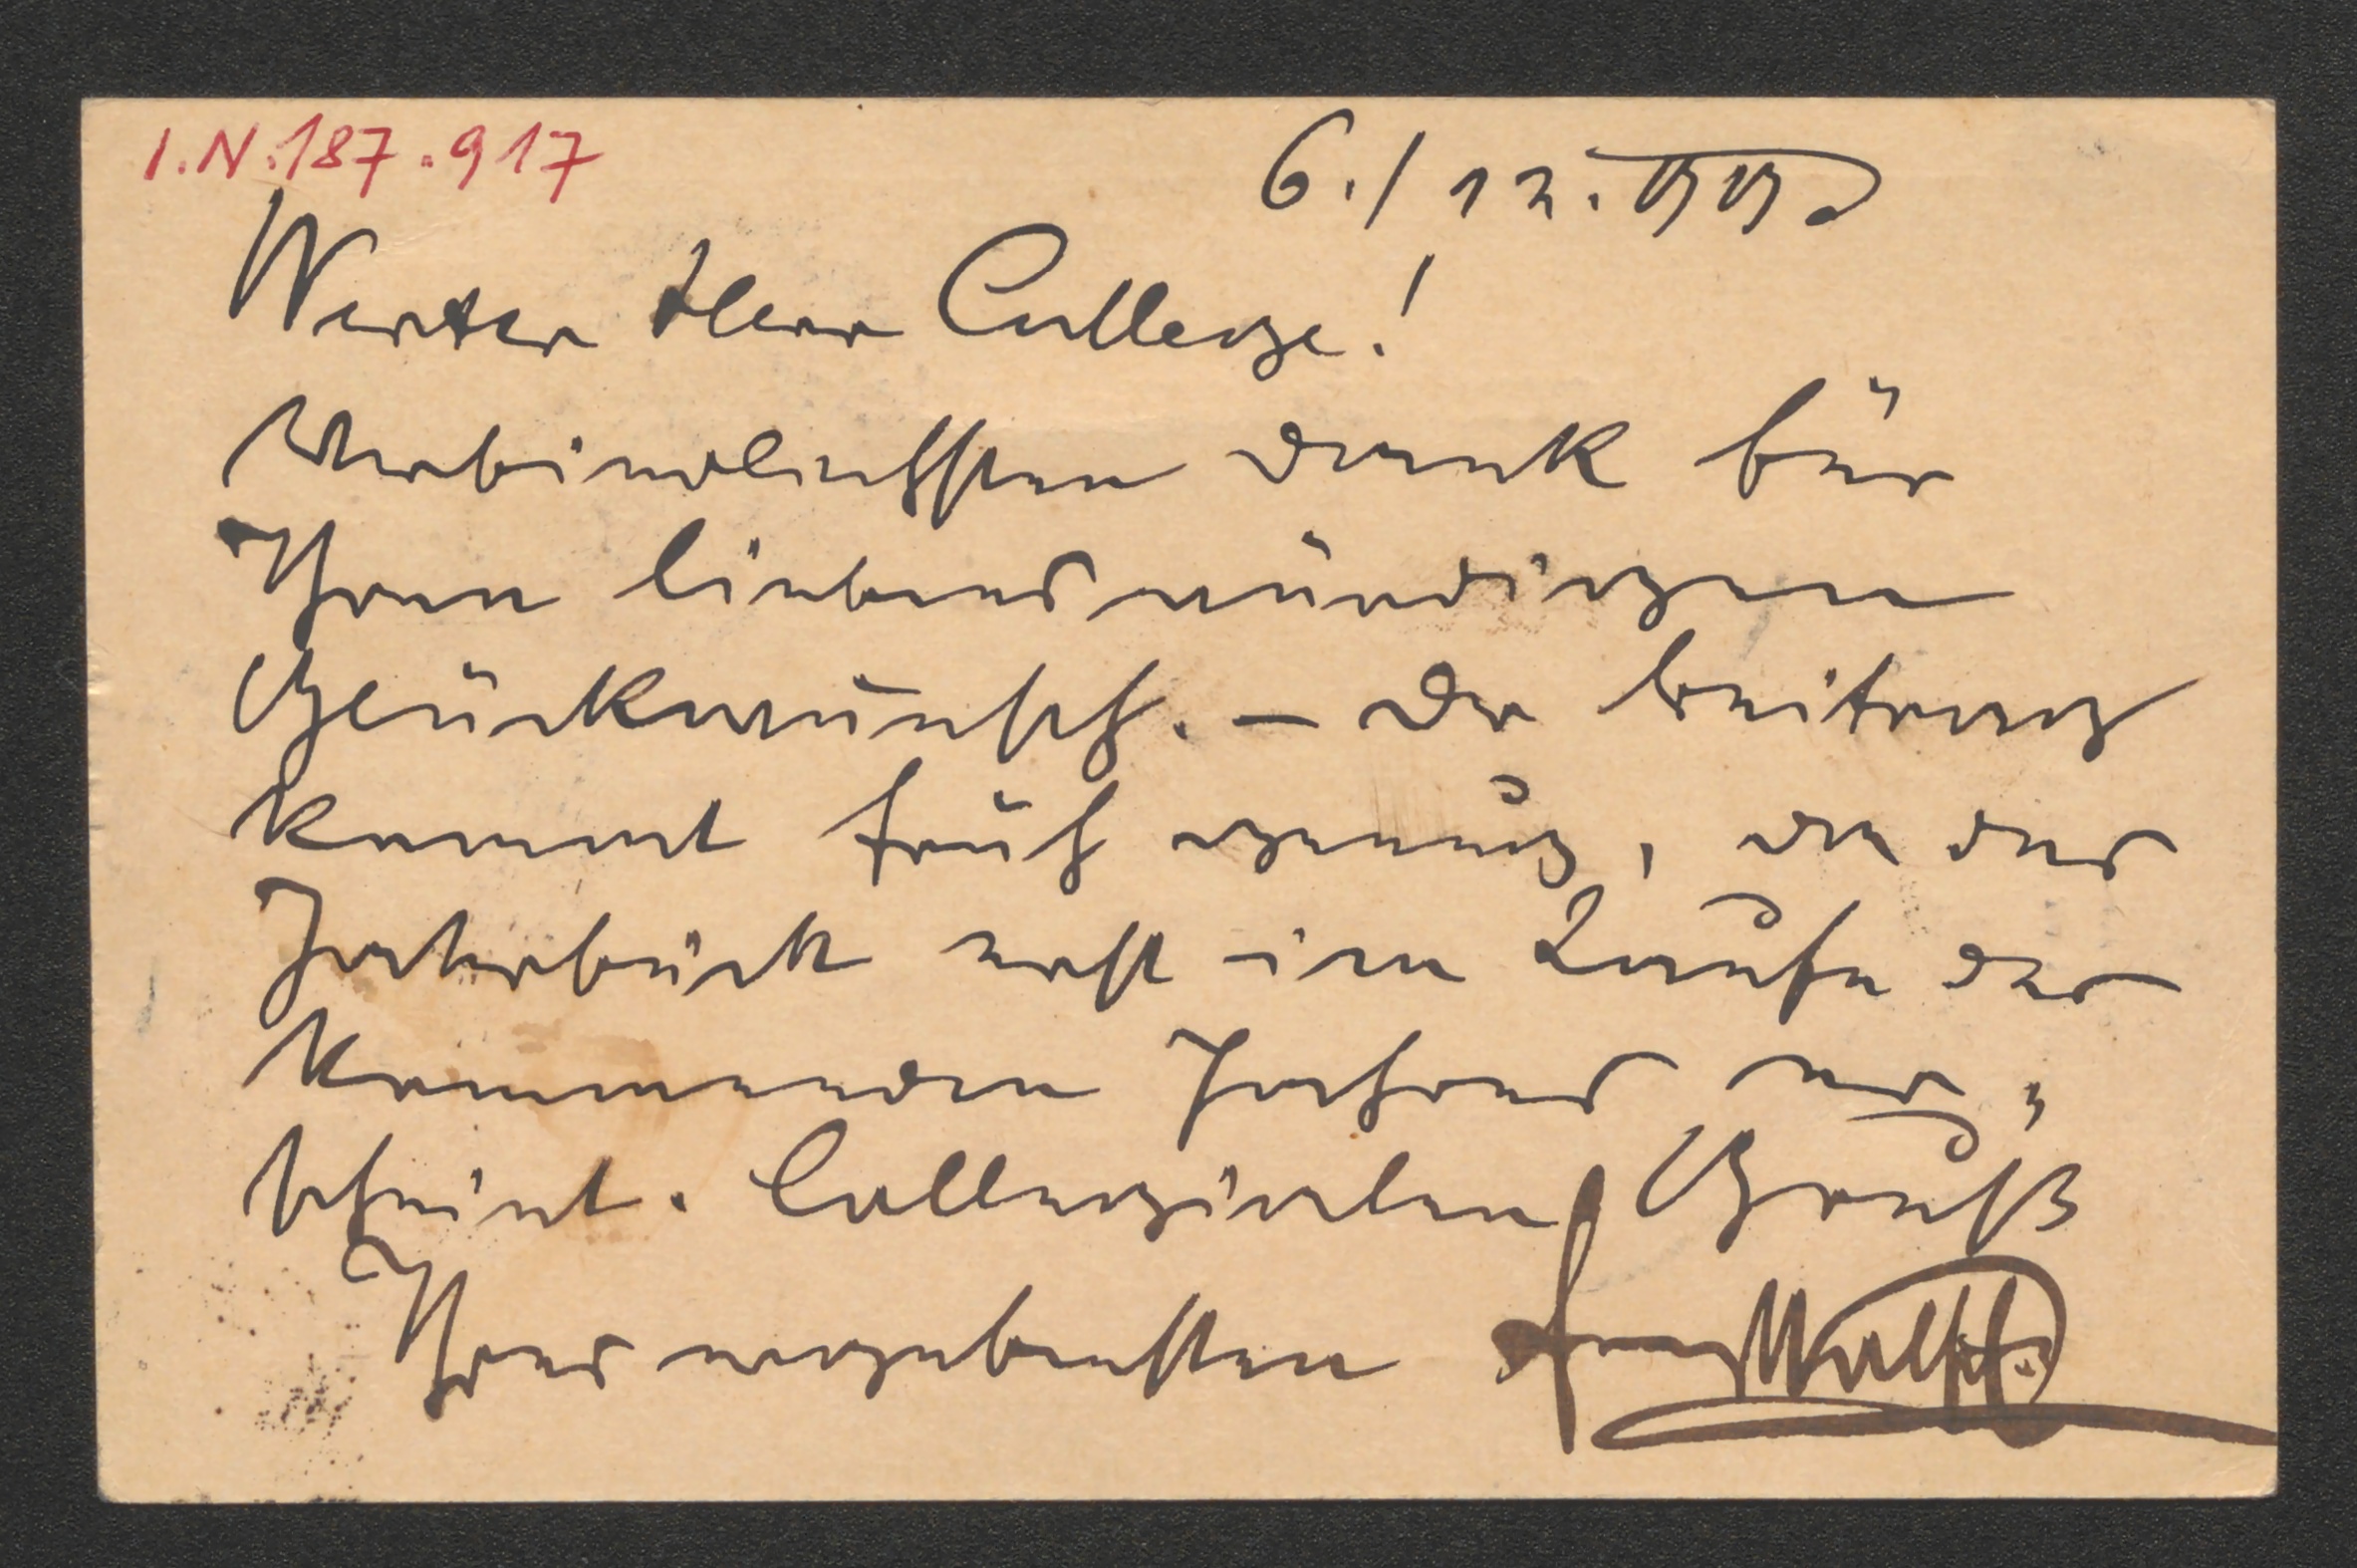 I.N. 187.917
6./12.
Werter Herr College!
Verbindlichsten Dank für
Ihren liebenswürdigen
Glückwunsch. – Der Beitrag
kommt früh genug, da das
Jahrbuch erst im Laufe des
kommenden Jahres er=
scheint. Collegialen Gruß
Ihres ergebensten